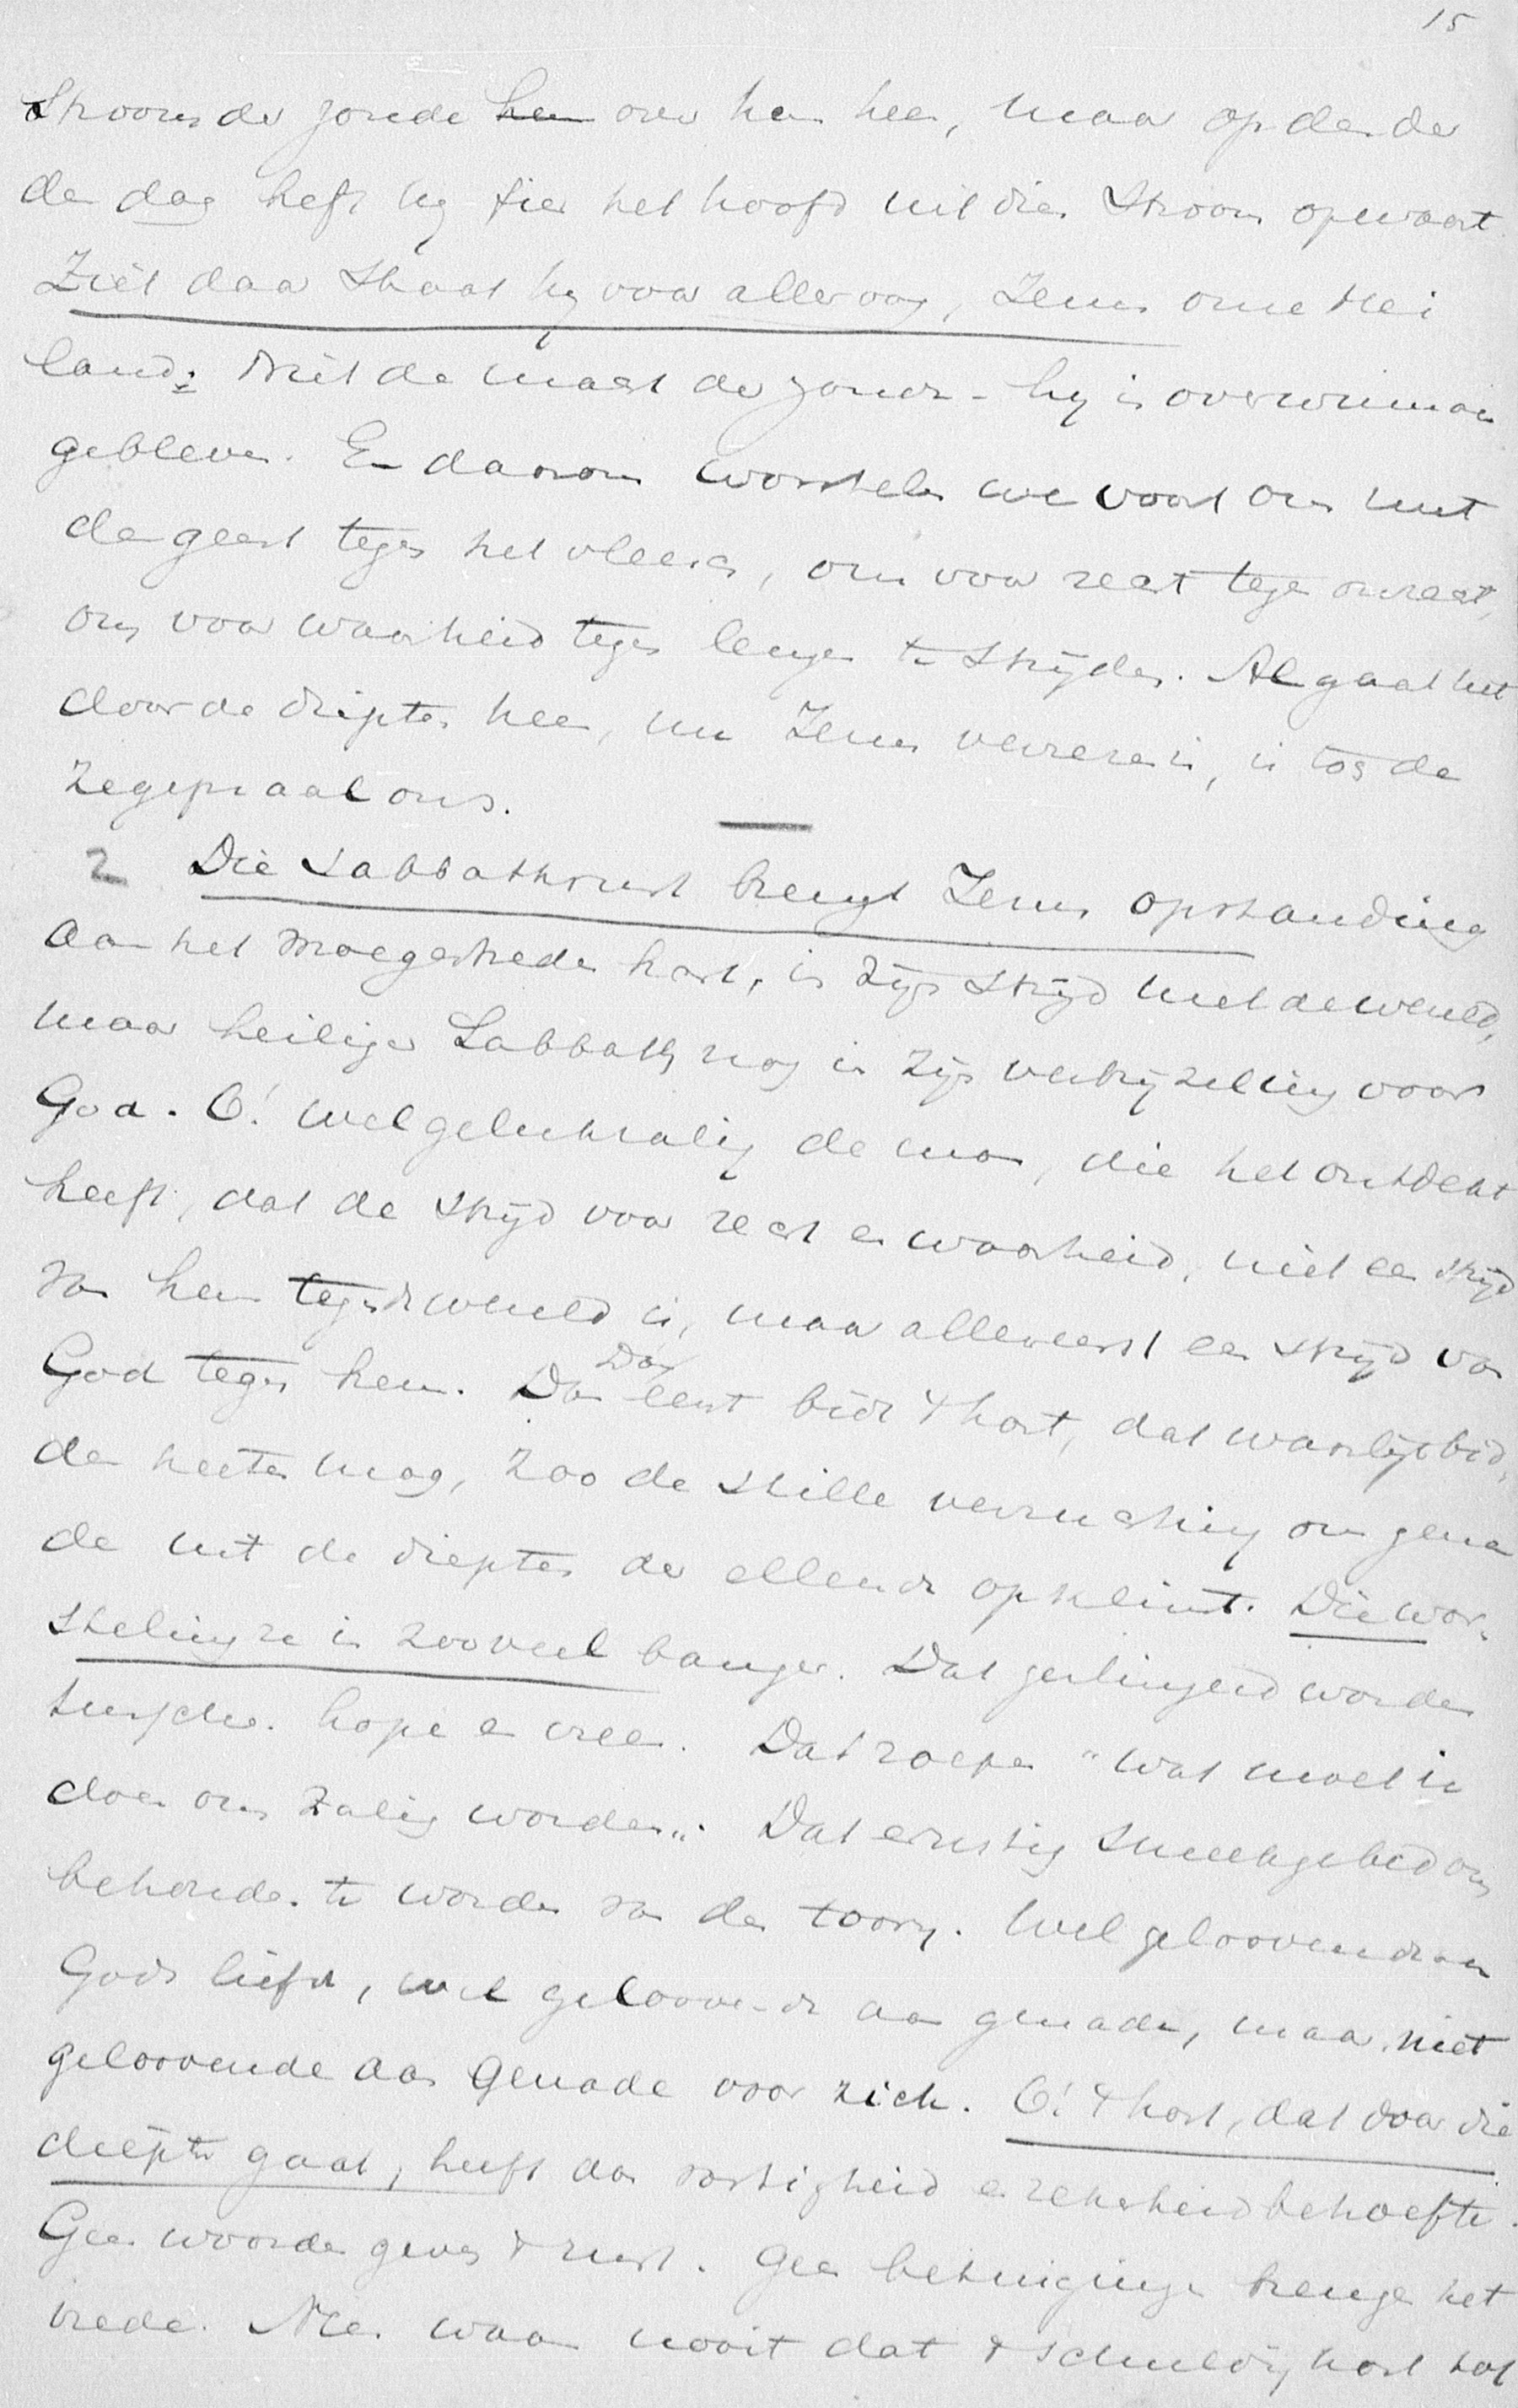 15
stroom der zonde hen over hem heen, maar op den der
den dag heft hij fier het hoofd uit dien stroom opwaart
Ziet daar staat hij voor aller oog, Jezus onze Hei
land: Niet de macht der zonde - hij is overwinnaar
gebleven. En daarom worstelen we voort om met
den geest tegen het vleesch, om voor recht tegen onrecht,
om voor waarheid tegen leugen te strijden. Al gaat het
door de diepten heen, nu Jezus verrezen is, is toch de
zegepraal ons.
2 Die Sabbathsrust brengt Jezus opstanding
aan het moegestreden hart, in zijn strijd met de wereld,
maar heiliger Sabbath nog in zijn verbrijzeling voor
God. O! welgelukzalig de man, die het ontdekt
heeft, dat de strijd voor recht en waarheid, niet een strijd
van hem tegen de wereld is, maar allereerst een strijd van
God tegen hem. Dan Dan eerst bidt 't hart, dat waarlijk bid,
den heeten mag, zoo de stille verzuchting om gena
de uit de diepten der ellende opklimt. Die wor-
steling ze is zooveel banger. Dat geslingerd worden
tusschen hope en vree. Dat roepen "wat moet ik
doen om zalig worden". Dat ernstig smeekgebed om
behouden te worden van den toorn. Wel geloovende aan
Gods liefde, wel geloovende aan genade, maar niet
geloovende aan genade voor zich. O! 't hart, dat door die
diepten gaat, heeft aan vastigheid en zekerheid behoefte.
Geen woorden geven 't rust. Geen betuigingen brengen het
vrede. Nee. waar nooit dat 't schuldig hart tot